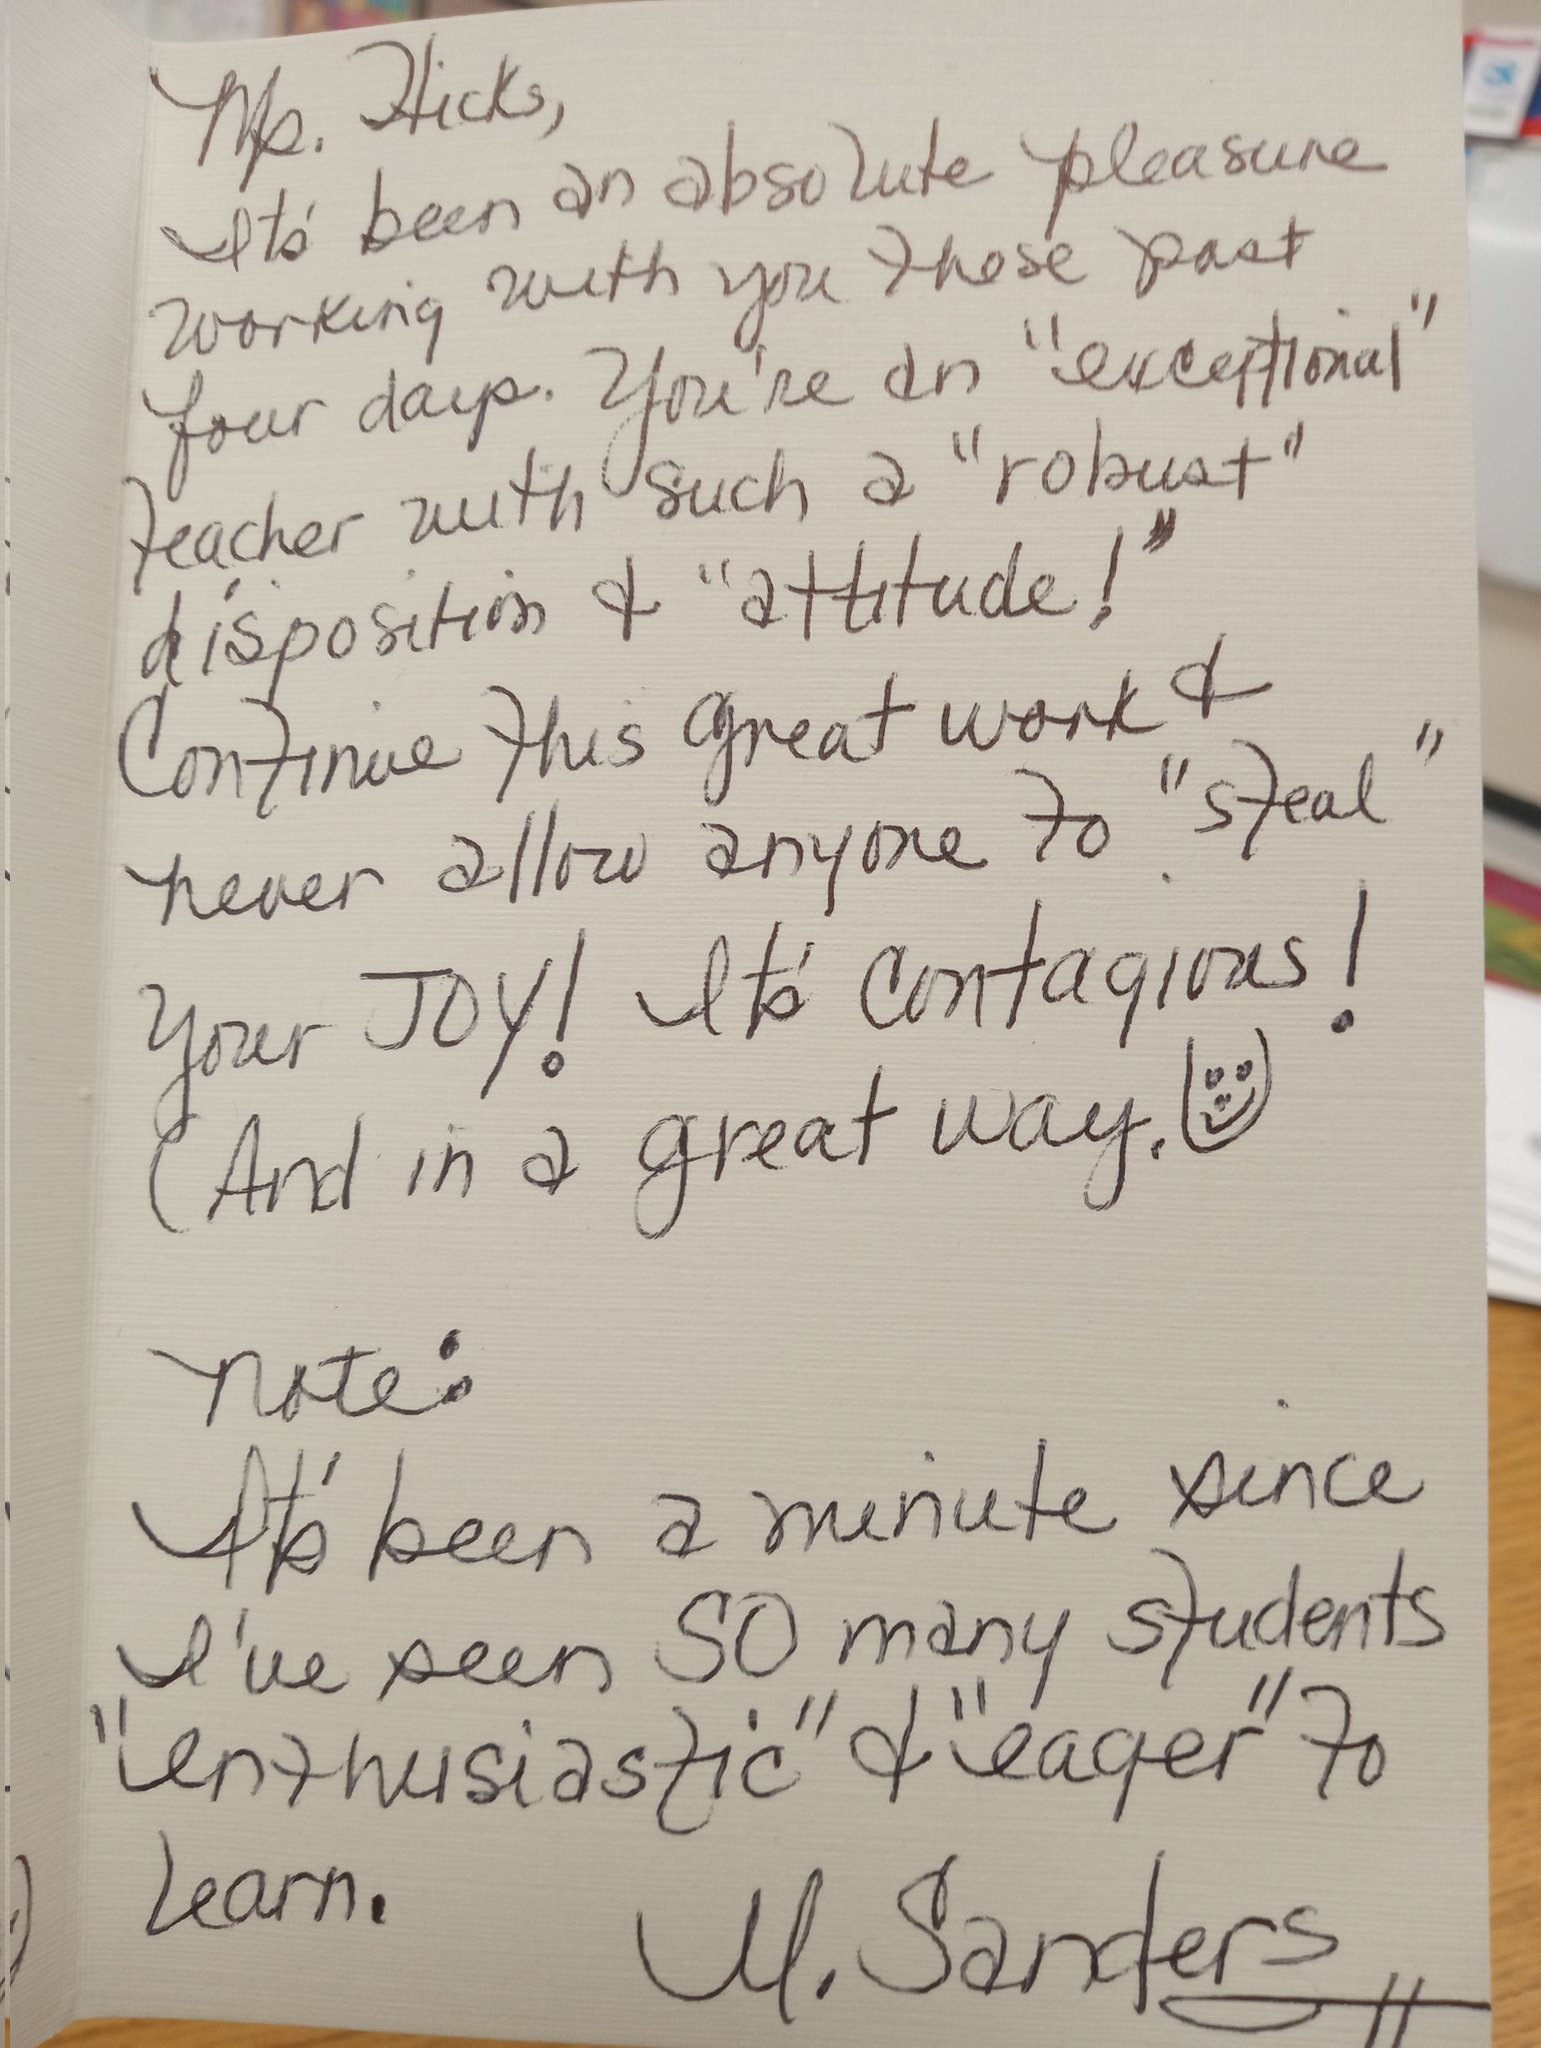 Ms. Hicks,
It's been an absolute pleasure
working with you these past
four days. You're an "exceptional"
teacher with such a "robust"
disposition & "attitude!"
Continue this great work &
never allow anyone to "steal"
your JOY! It's contagious!
(And in a great way.
Note:
It's been a minute since
I've seen SO many students
"enthusiastic" & "eager" to
learn.
M. Sanders